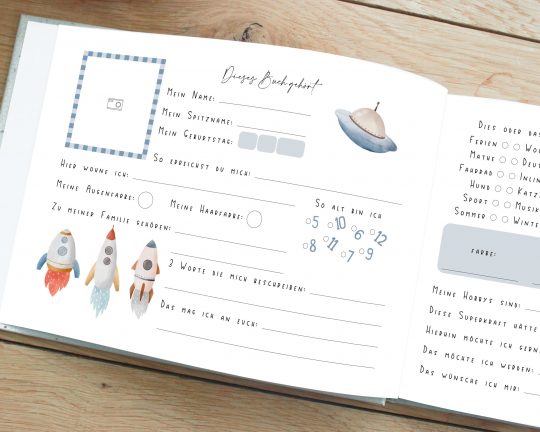 Dieses Buch gehört
Mein Name:
Mein Spitzname:
Mein Geburtstag:
So erreichst du mich:
Hier wohne ich:
Meine Augenfarbe:
Meine Haarfarbe:
So alt bin ich
5 10 6 12
8 11 7 9
Zu meiner Familie gehören:
3 Worte die mich beschreiben:
Das mag ich an euch:
Dies oder das
Ferien
Mathe
Fahrrad
Hund
Sport
Sommer
Farbe:
Meine Hobbys sind:
Diese Superkraft hätte
Hierhin möchte ich
Das möchte ich werden:
Das wünsche ich mir: